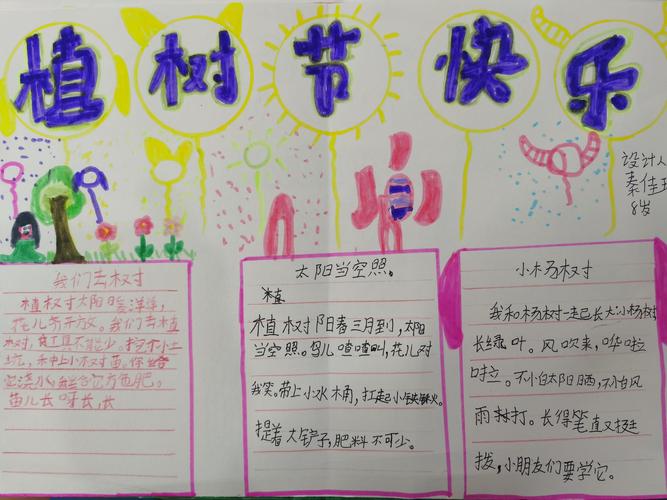 植树节快乐
设计人
秦佳
8岁
我们去树
植树太阳暖洋洋,
花儿齐开放。我们去植
树,工具不能少。挖个小土
坑,种上小树苗。你给
它浇水,我给它施肥。
苗儿长呀长,长
太阳当空照。
植
植树阳春三月到,太阳
当空照。鸟儿喳喳叫,花儿对
我笑。带上小水桶,扛起小铁锹。
提着大铲子,肥料不可少。
小杨树
我和杨树一起长大,小杨树
长绿叶。风吹来,哗啦
啦。不怕太阳晒,不怕风
雨淋打。长得笔直又挺
拨,小朋友们要学它。